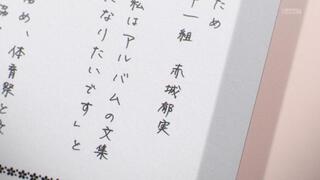 ため
十一組　赤城郁実
私はアルバムの文集
になりたいです」と
め、体育祭と文